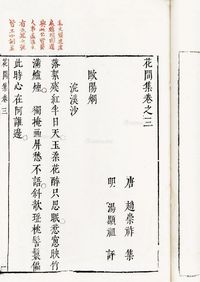 花間集卷之三
唐 趙崇祚 集
明 湯顯祖 評
歐陽炯
浣溪沙
落絮殘紅半日天玉柔花醉只思眠惹窻映竹
滿爐煙 獨掩畫屏愁不語斜欹瑤枕髻鬟偏
此時心在阿誰邊
花間集 卷三 一